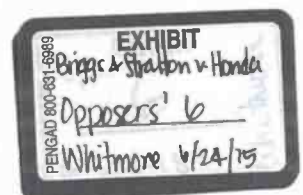 PENGAD 800-631-6989
EXHIBIT
Briggs & Stratton v. Honda
Opposers' 6
Whitmore 6/24/15